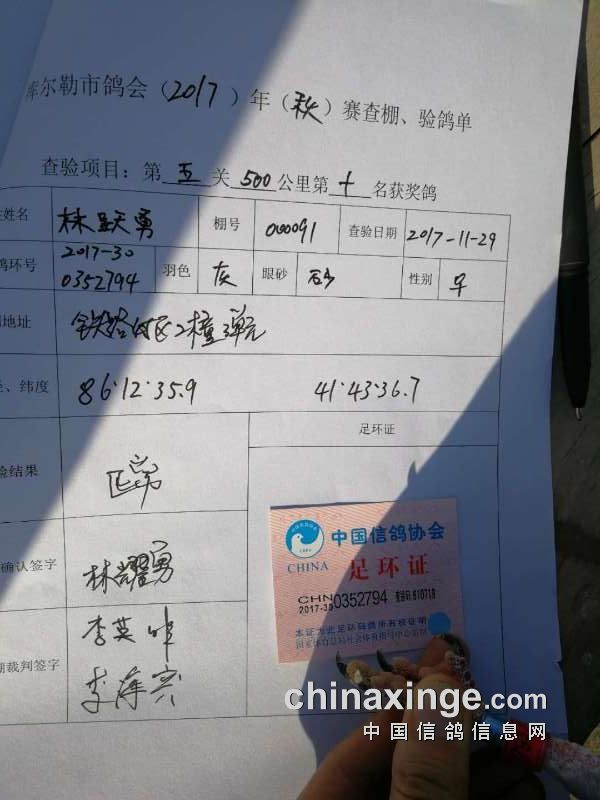 库尔勒市鸽会（2017）年（秋）赛查棚、验鸽单
查验项目：第五关500公里第十名获奖鸽
姓名 林跃勇 棚号 000091 查验日期 2017-11-29
鸽环号 2017-30 0352794 羽色 灰 眼砂 砂 性别 
地址 铁路 区2橦3单元
、纬度 86·12·35.9 41·43·36.7
足环证
验结果
确认签字 林耀勇
裁判签字 李英
中国信鸽协会
CHINA 足环证
CHN 2017-30 0352794
本证为此足环鸽拥有权证明
chinaxinge.com
中国信鸽信息网